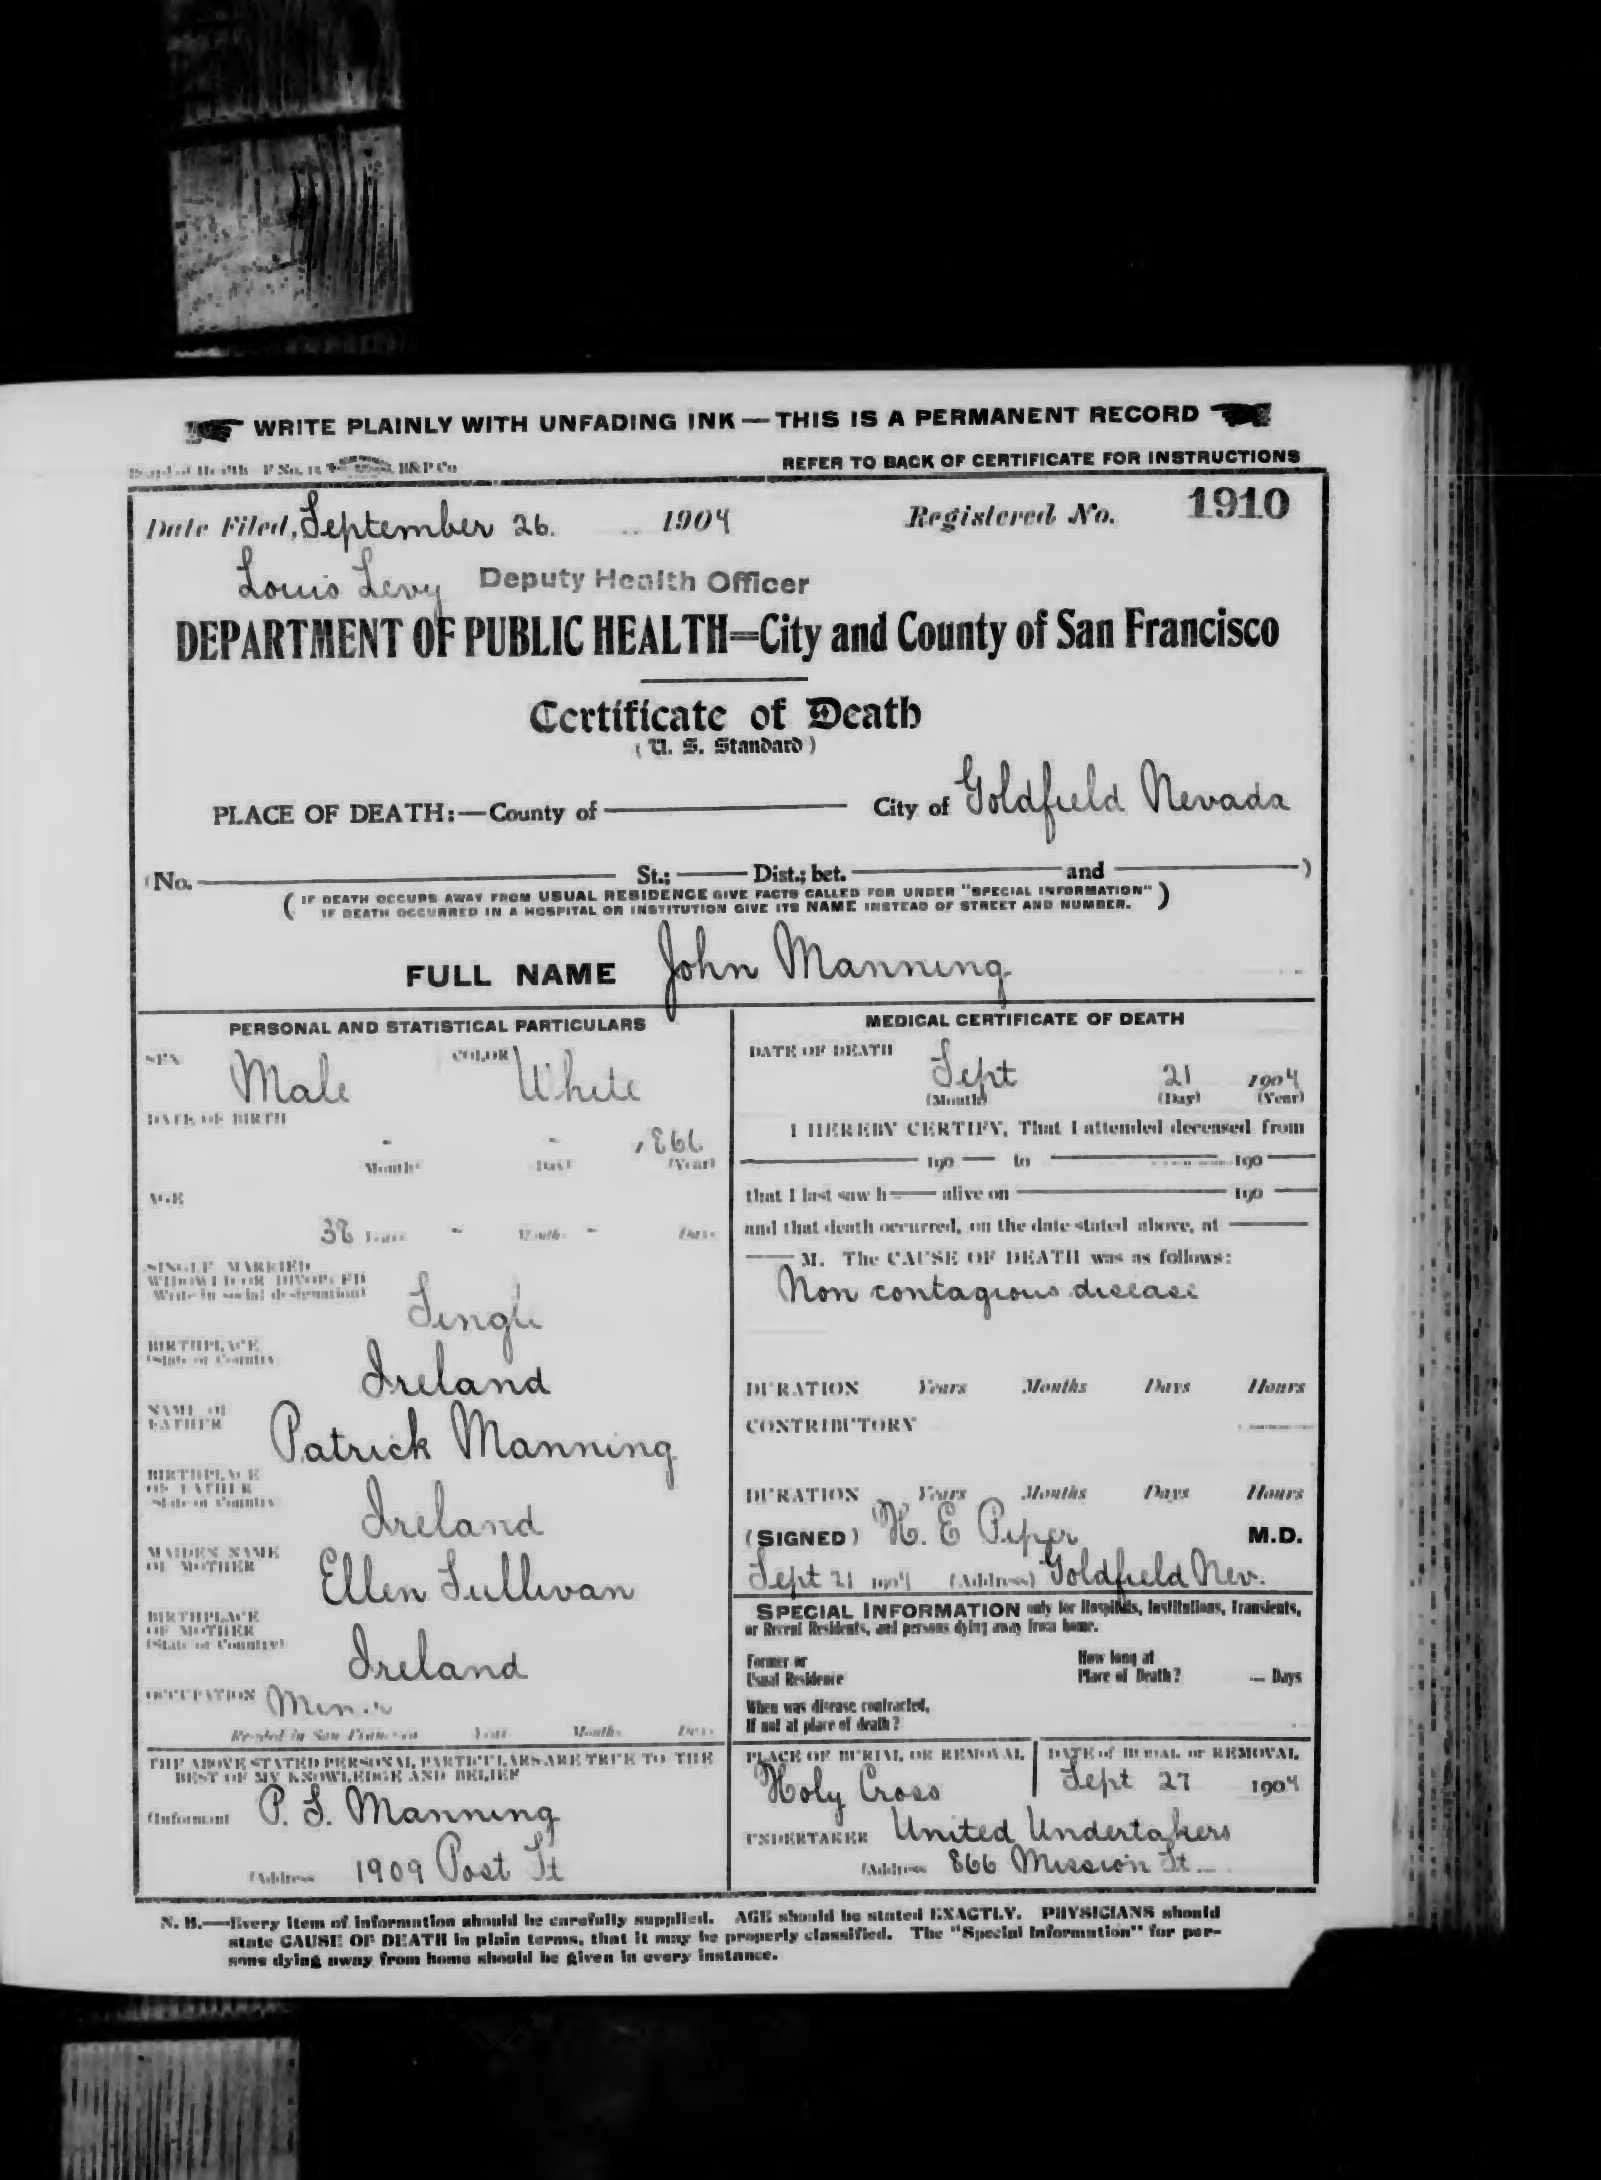 WRITE PLAINLY WITH UNFADING INK — THIS IS A PERMANENT RECORD
REFER TO BACK OF CERTIFICATE FOR INSTRUCTIONS
Date Filed, September 26. 1904 Registered No. 1910
Louis Levy Deputy Health Officer
DEPARTMENT OF PUBLIC HEALTH=City and County of San Francisco
Certificate of Death
(U. S. Standard)
PLACE OF DEATH:—County of City of Goldfield Nevada
(No. St.; Dist.; bet. and )
(IF DEATH OCCURS AWAY FROM USUAL RESIDENCE GIVE FACTS CALLED FOR UNDER "SPECIAL INFORMATION"
IF DEATH OCCURRED IN A HOSPITAL OR INSTITUTION GIVE ITS NAME INSTEAD OF STREET AND NUMBER.)
FULL NAME John Manning
PERSONAL AND STATISTICAL PARTICULARS
SEX Male COLOR White
DATE OF BIRTH
- - 1866
(Month) (Day) (Year)
AGE
38 Years - Months - Days
SINGLE MARRIED
WIDOWED OR DIVORCED
(Write in social designation)
Single
BIRTHPLACE
(State or Country)
Ireland
NAME OF
FATHER
Patrick Manning
BIRTHPLACE
OF FATHER
(State or Country)
Ireland
MAIDEN NAME
OF MOTHER
Ellen Sullivan
BIRTHPLACE
OF MOTHER
(State or Country)
Ireland
OCCUPATION Miner
Resided in San Francisco Years Months Days
THE ABOVE STATED PERSONAL PARTICULARS ARE TRUE TO THE
BEST OF MY KNOWLEDGE AND BELIEF
(Informant P. S. Manning
(Address 1909 Post St
MEDICAL CERTIFICATE OF DEATH
DATE OF DEATH
Sept 21 1904
(Month) (Day) (Year)
I HEREBY CERTIFY, That I attended deceased from
190 to 190
that I last saw h alive on 190
and that death occurred, on the date stated above, at
M. The CAUSE OF DEATH was as follows:
Non contagious disease
DURATION Years Months Days Hours
CONTRIBUTORY
DURATION Years Months Days Hours
(SIGNED) H. E Piper M.D.
Sept 21 1904 (Address) Goldfield Nev.
SPECIAL INFORMATION only for Hospitals, Institutions, Transients,
or Recent Residents, and persons dying away from home.
Former or
Usual Residence
How long at
Place of Death? Days
When was disease contracted,
If not at place of death?
PLACE OF BURIAL OR REMOVAL
Holy Cross
DATE of BURIAL or REMOVAL
Sept 27 1904
UNDERTAKER United Undertakers
(Address 866 Mission St.
N. B.—Every item of information should be carefully supplied. AGE should be stated EXACTLY. PHYSICIANS should
state CAUSE OF DEATH in plain terms, that it may be properly classified. The "Special Information" for per-
sons dying away from home should be given in every instance.